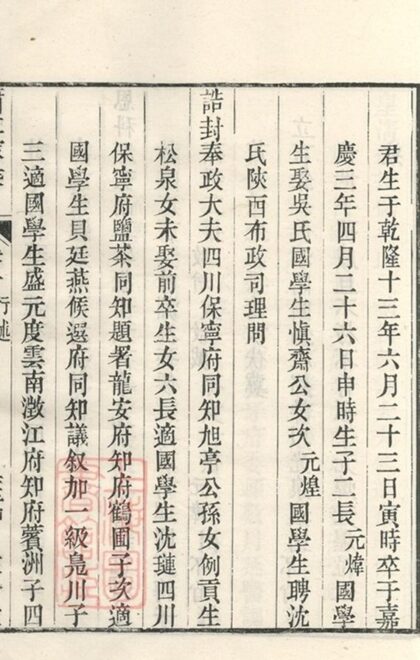 君生于乾隆十三年六月二十三日寅時卒于嘉
慶三年四月二十六日申時生子二長元煒國學
生娶吳氏國學生愼齋公女次元煌國學生聘沈
氏陝西布政司理問
誥封奉政大夫四川保寧府同知旭亭公孫女例貢生
松泉女未娶前卒生女六長適國學生沈璉四川
保寧府鹽茶同知題署龍安府知府鶴圃子次適
國學生貝廷燕候選府同知議敘加一級鳧川子
三適國學生盛元度雲南澂江府知府蓂洲子四
行述